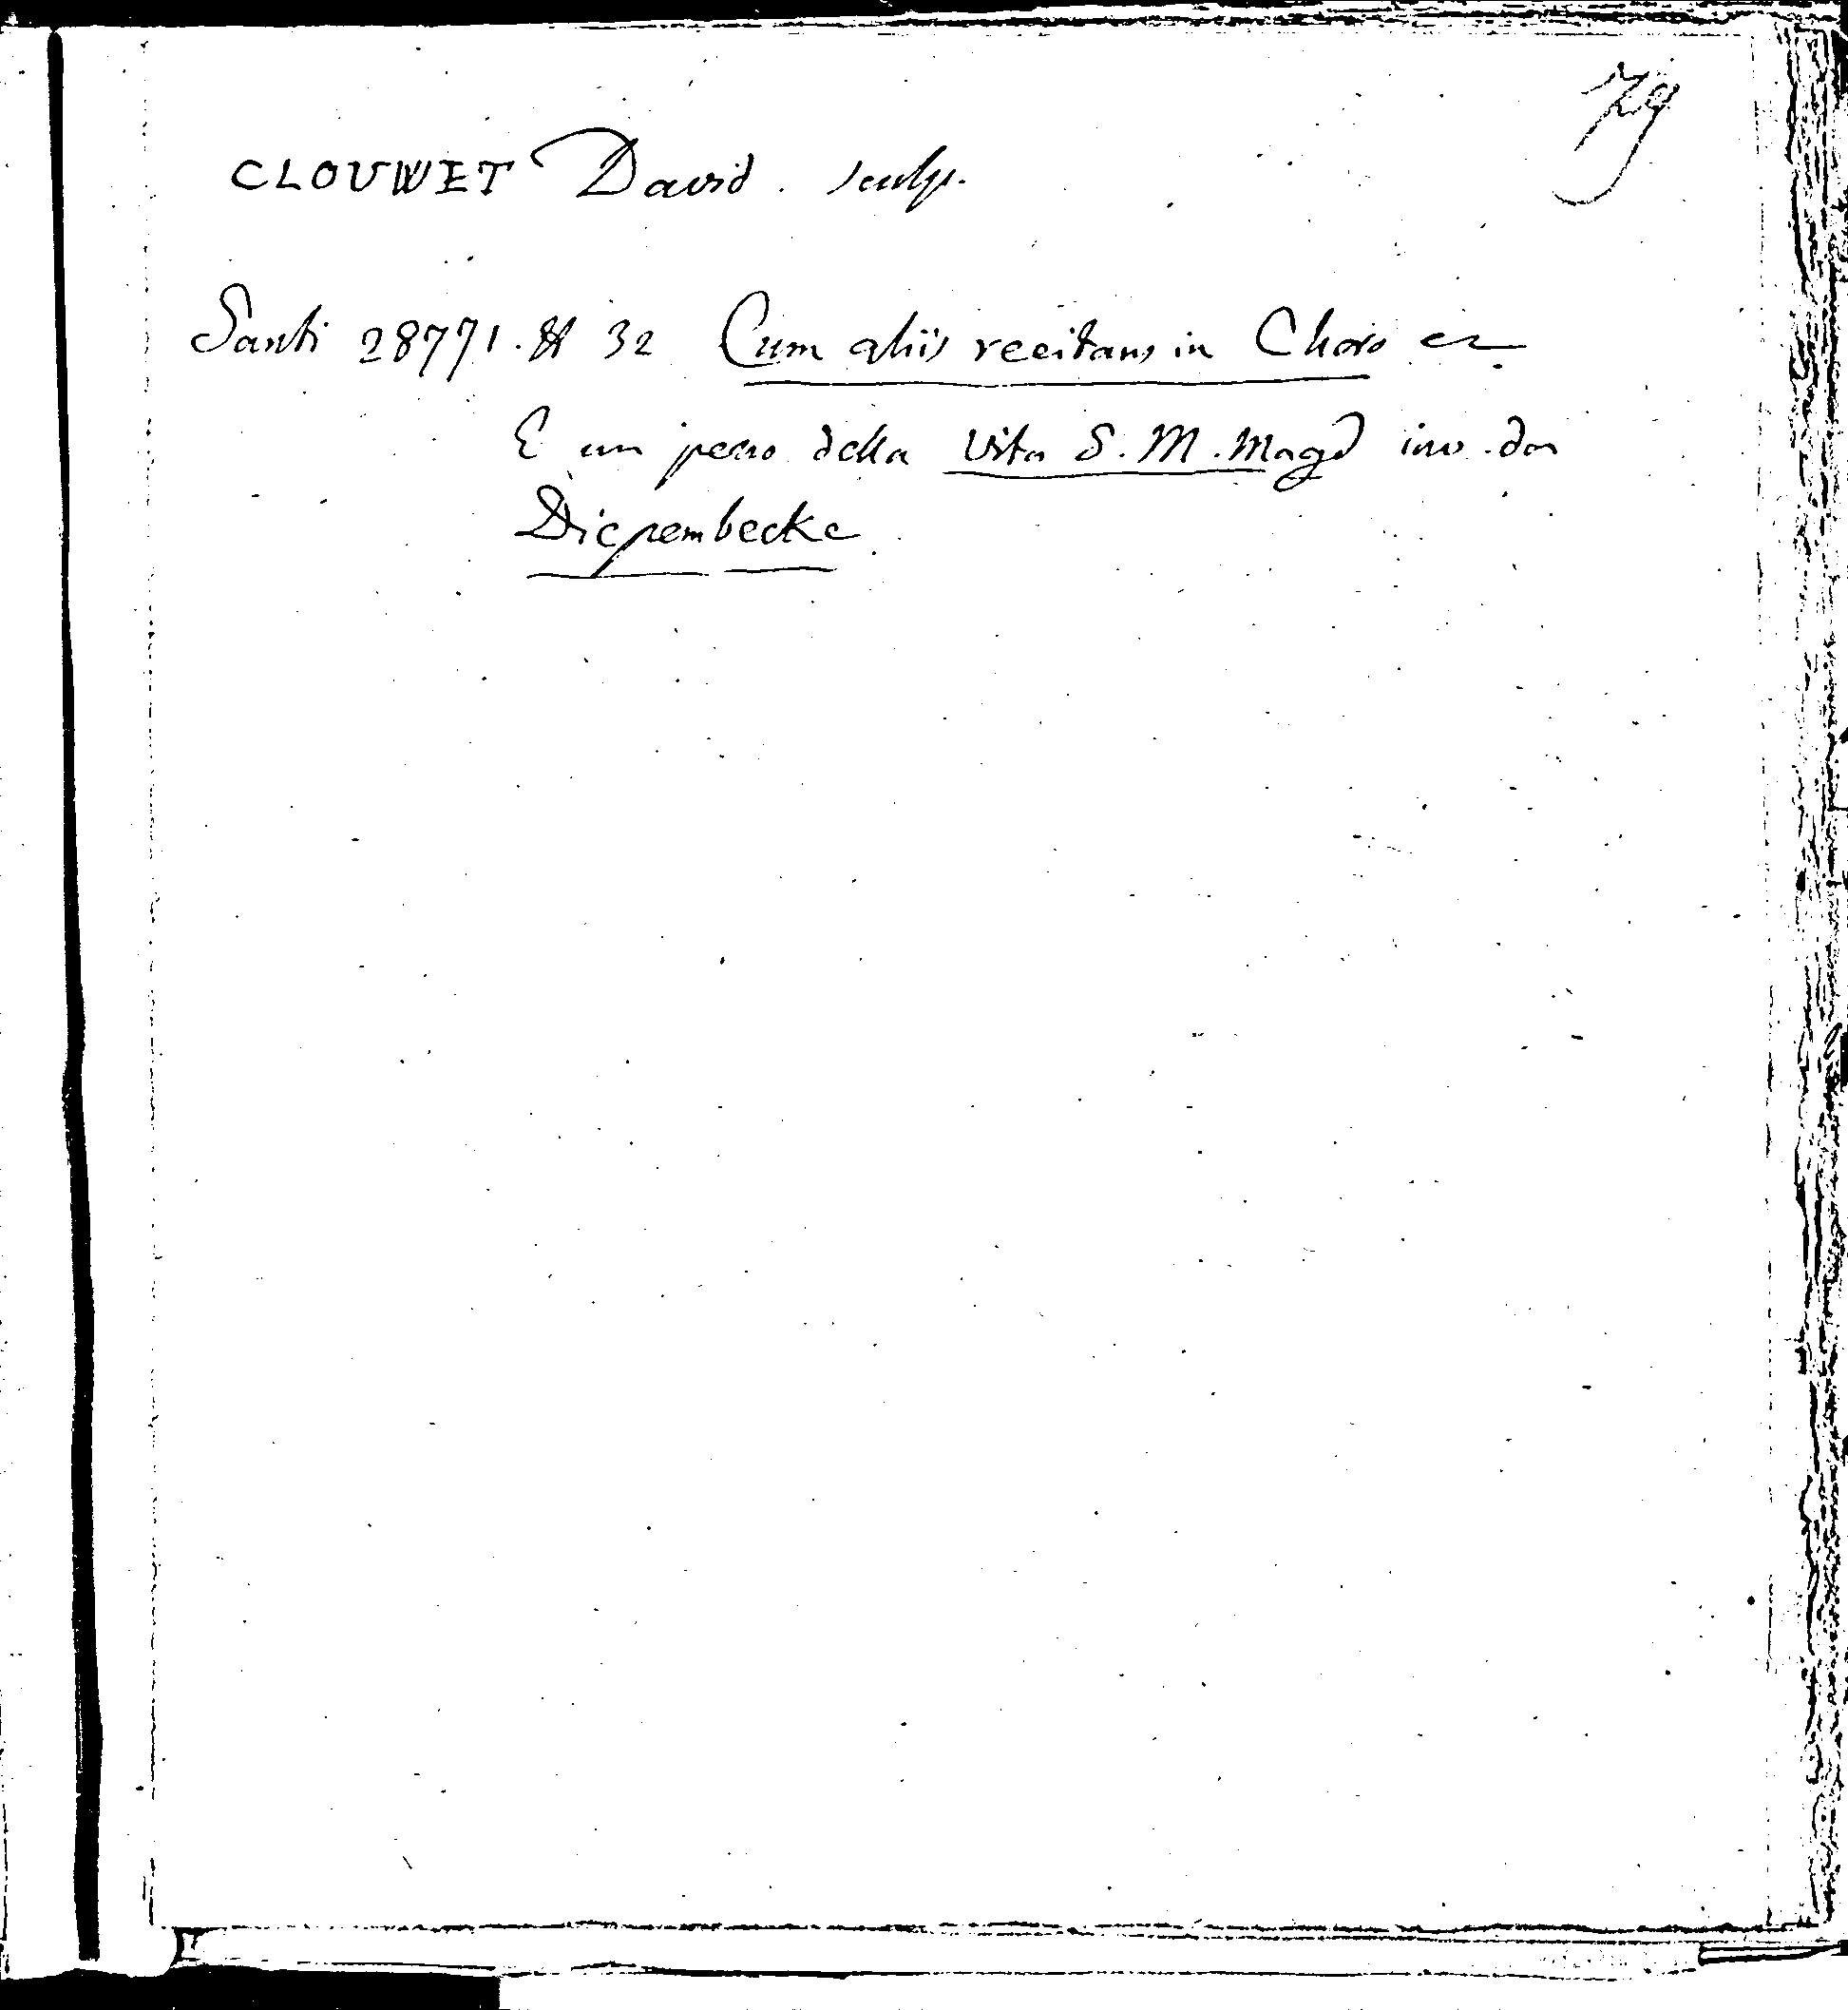 79
CLOUWET David. sculp.
Santi 28771. # 32 Cum aliis recitans in Choro ec
E un pezzo della Vita S. M. Magd inv. da
Diepembecke